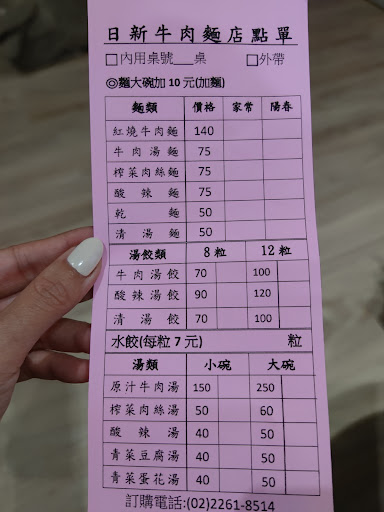 日新牛肉麵店點單
□內用桌號___桌 □外帶
◎麵大碗加 10 元(加麵)
麵類 價格 家常 陽春
紅燒牛肉麵 140
牛肉湯麵 75
榨菜肉絲麵 75
酸辣麵 75
乾麵 50
清湯麵 50
湯餃類 8 粒 12 粒
牛肉湯餃 70 100
酸辣湯餃 90 120
清湯餃 70 100
水餃(每粒 7 元) 粒
湯類 小碗 大碗
原汁牛肉湯 150 250
榨菜肉絲湯 50 60
酸辣湯 40 50
青菜豆腐湯 40 50
青菜蛋花湯 40 50
訂購電話:(02)2261-8514